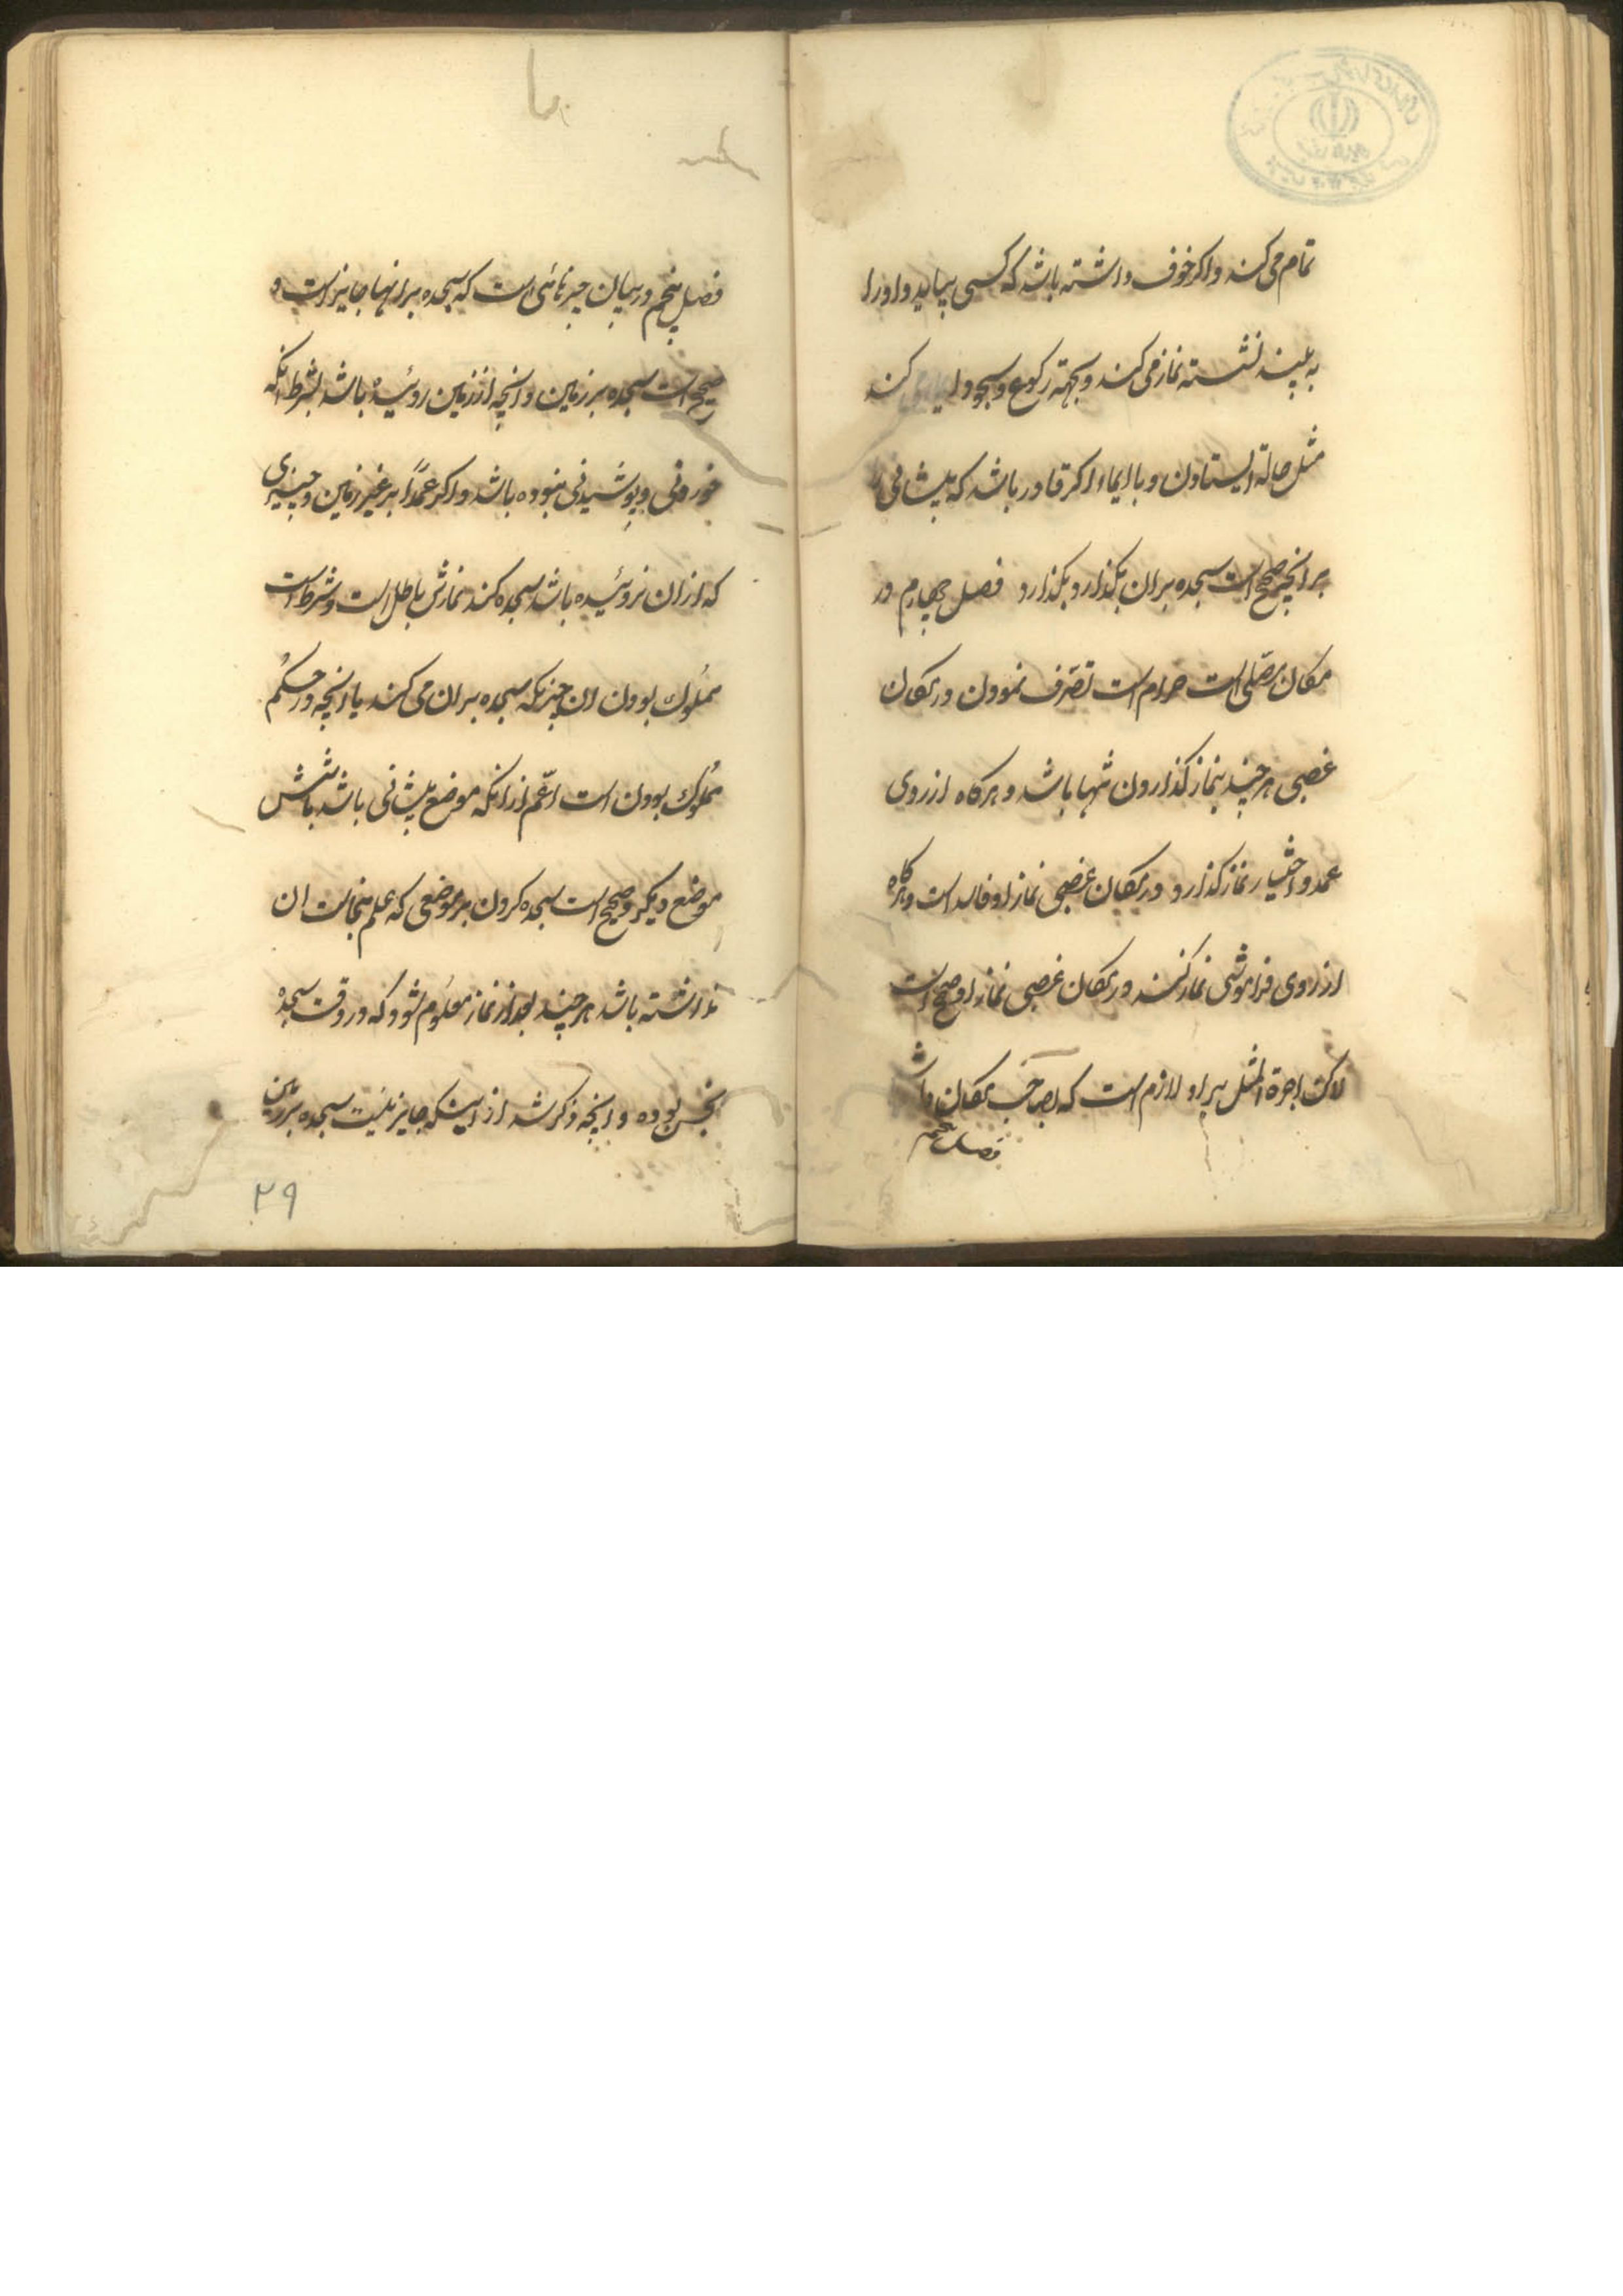 تمام می کند و اکر خوف داشته باشد که کسی بیاید و او را
به بیند نشسته نماز می کند و بجهته رکوع و سجود ایما می کند
مثل حالة ایستادن و با ایماء اکر قادر باشد که پیشانی را
بر انچه صحیح است سجده بر ان بکذارد بکذارد فصل چهارم در
مکان مصّلی است حرام است تصّرف نمودن در مکان
غصبی هر چند بنماز کذاردن تنها باشد و هر کاه از روی
عمد و اختیار نماز کذارد در مکان غصبی نماز او فاسد است و هر کاه
از روی فراموشی نماز کند در مکان غصبی نماز او صحیح است
لاکن اجرة المثل بر او لازم است که بصاحب مکان بدهد
فصل پنجم
فصل پنجم در بیان چیزهائی است که سجده بر انها جایز است و
صحیح است سجده بر زمین و انچه از زمین روئیده باشد بشرط انکه
خوردنی و پوشیدنی نبوده باشد و اکر عمداً بر غیر زمین و چیزی
که از ان نروئیده باشد سجده کند نمازش باطل است و شرط است
مملُوک بودن ان چیزیکه سجده بر ان می کند یا انچه در حکم
مملُوک بودن است اعّم از انکه موضع پیشانی باشد یا شش
موضع دیکر و صحیح است سجده کردن بر موضعی که علم بنجاست ان
نداشته باشد هر چند بعد از نماز معلوم شود که در وقت سجده
نجس بوده و انچه ذکر شد از اینکه جایز نیست سجده بر زمین
۲۹